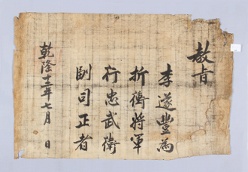 敎旨
李遂豐為
折衝將軍
行忠武衛
副司正者
乾隆年七月 日